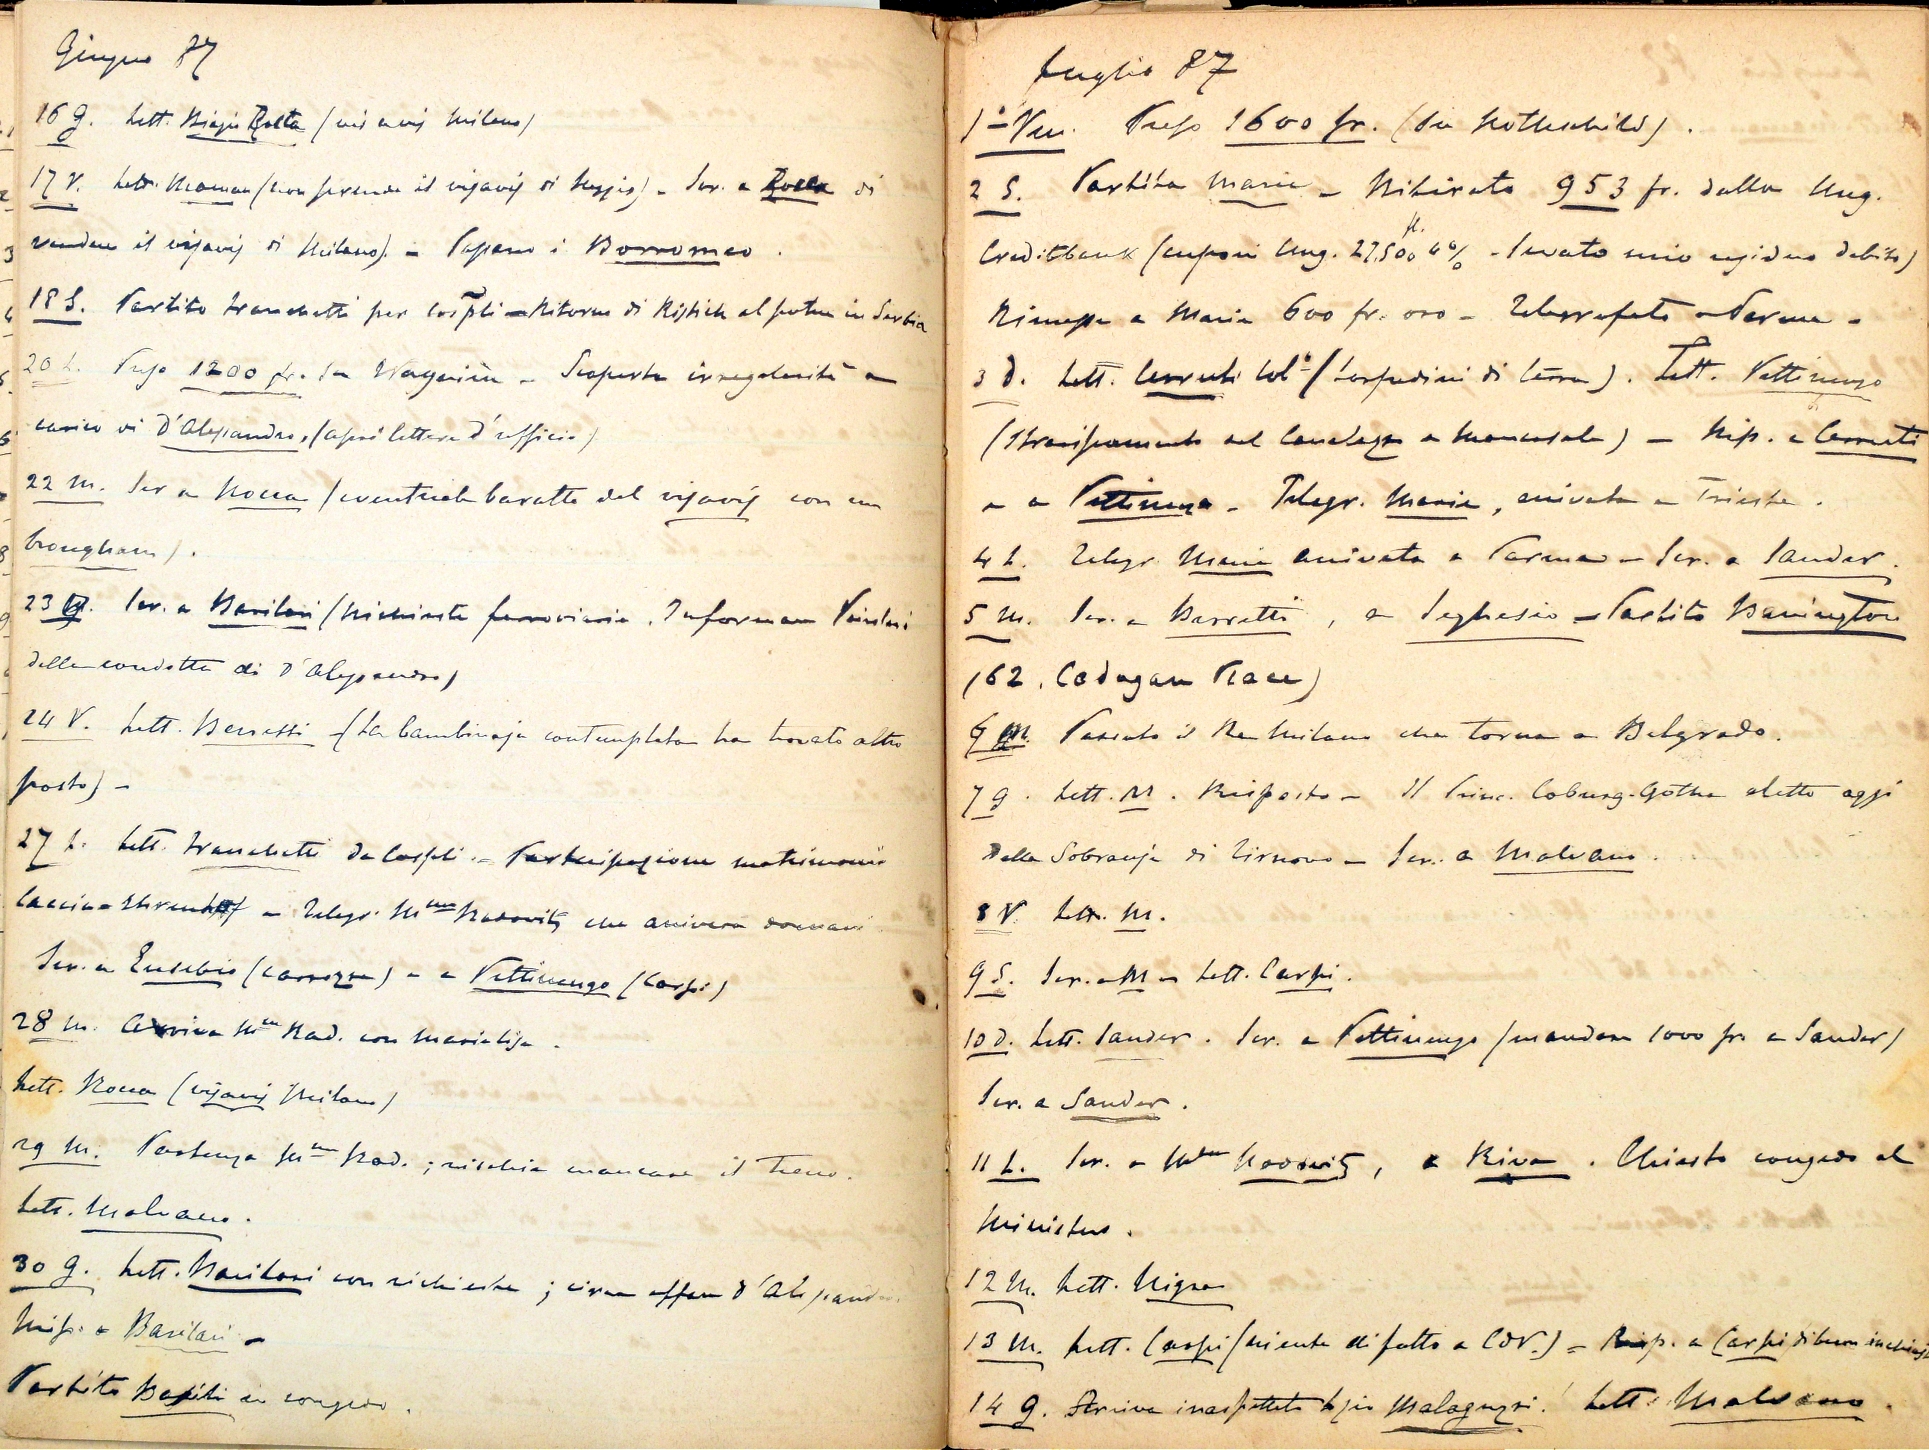 Giugno 87
16 G. Lett. Biagio Rocca (vis a vis Milano)
17 V. Lett. (non prende il visavis di Reggio) - Scr. a Rocca di
vendere il visavis di Milano). - Passano i Borromeo.
18 S. Partito Franchetti per Cospoli - Ritorno di Ristich al potere in Serbia
20 L. Preso 1200 fr. da Wagnière - Scoperte irregolarità a
carico di D'Alessandro, (aprì lettere d'ufficio)
22 M. Scr a Rocca (eventuale baratto del visavis con un
brougham).
23 G. Scr. a Basilari (Richiesta ferroviaria. Informare
della condotta di D'Alessandro)
24 V. Lett. Berretti - (La bambinaja contemplata ha trovato altro
posto) -
27 L. Lett. Franchetti da Cospoli. - Partecipazione matrimonio
Caccia - - Telegr. Mme Radovitz che arriverà domani
Scr. a Eusebio (carrozza) - a Pettinengo (Carpi)
28 M. Arriva Mme Rad. con Marialisa.
Lett. Rocca (visavis Milano)
29 M. Partenza Mme Rad.; rischia mancare il treno.
Lett. Malvano.
30 G. Lett. Basilari con richieste; circa affare d'Alessandro.
Risp. a Basilari -
Partito in congedo.
Luglio 87
1° Ven. Preso 1600 fr. (da Rothschild).
2 S. Partita Maria - Ritirato 953 fr. dalla Ung.
Creditbank (cuponi Ung. 27.500 fl. 4% - levato mio residuo debito)
Rimesse a Maria 600 fr. oro - Telegrafato a Parma -
3 D. Lett. Cerruti Colo (torpedini di terra). Lett. Pettinengo
( al a ) - Risp. a Cerruti
- a Pettinengo - Telegr. Maria, arrivata a Trieste.
4 L. Telegr. Maria arrivata a Parma - Scr. a Sander.
5 M. Scr. a Berretti, a Seghesio - Partito Barrington
(62. Cadogan Place)
6 M. Passato il Re Milano che torna a Belgrado.
7 G. Lett. M. Risposto - Il Princ. Coburg-Gotha eletto oggi
dalla Sobranja di Tirnovo - Scr. a Malvano.
8 V. Lett. M.
9 S. Scr. a M - Lett. Carpi.
10 D. Lett. Sander. Scr. a Pettinengo (mandare 1000 fr. a Sander)
Scr. a Sander.
11 L. Scr. a Mme Radovitz, a Riva. Chiesto congedo al
Ministero.
12 M. Lett. Nigra
13 M. Lett. Carpi (niente di fatto a CdV.) - Risp. a Carpi
14 G. Arriva inaspettato Malaguzzi. Lett. Malvano.